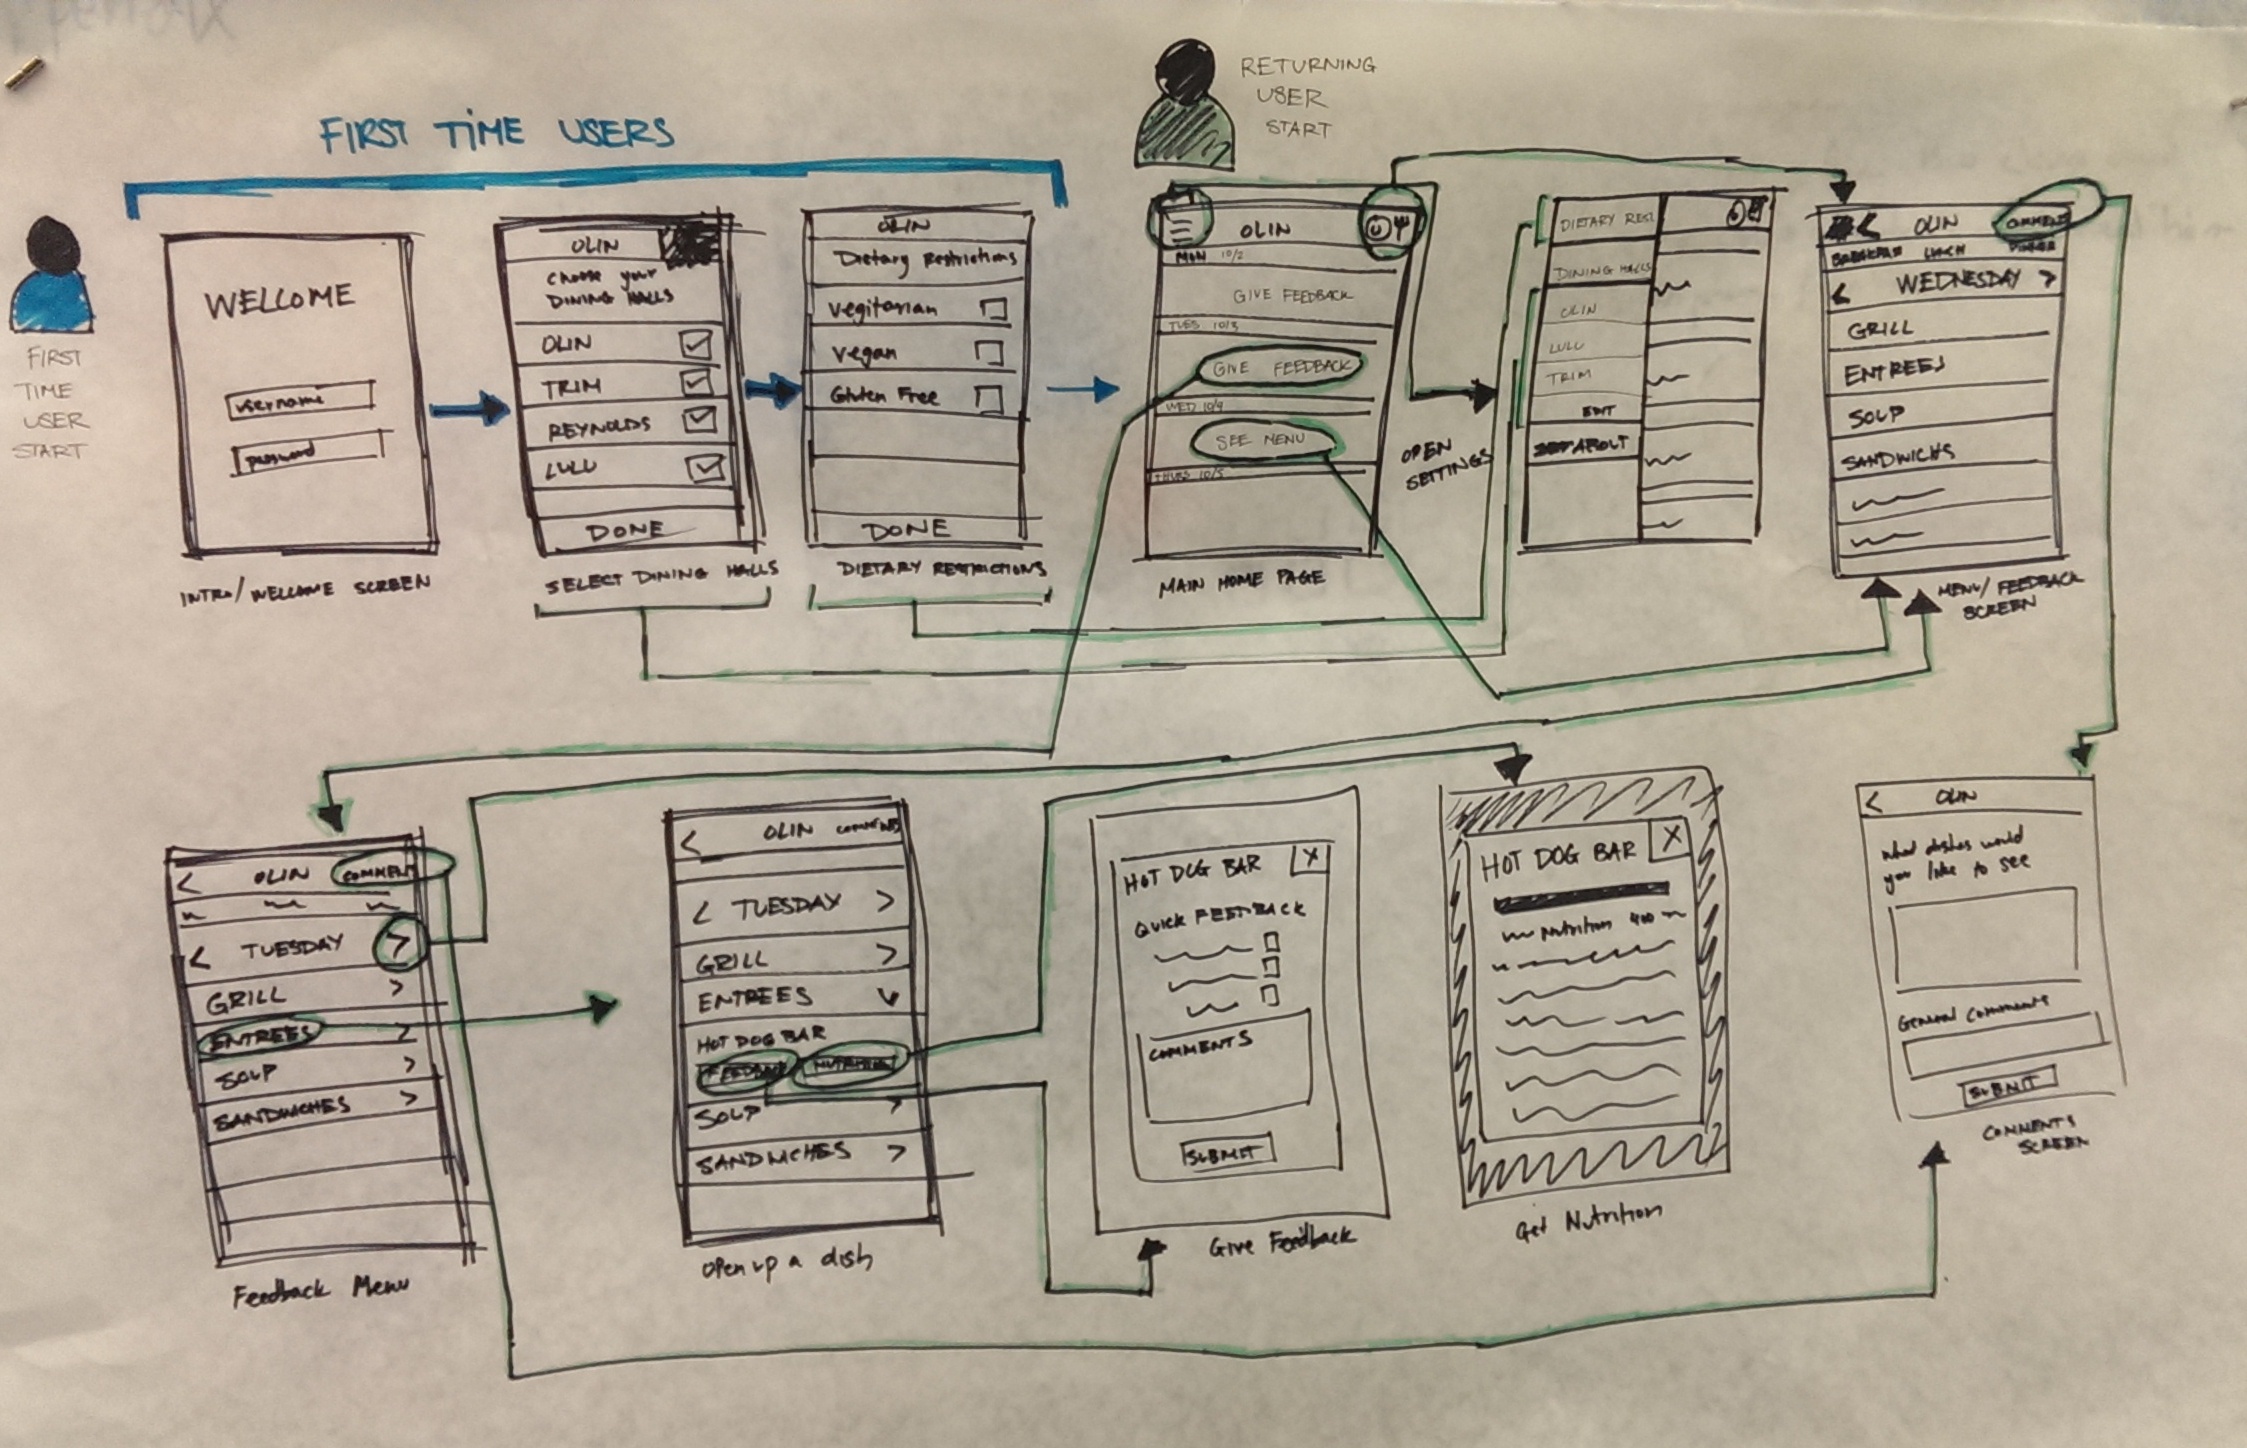 FIRST TIME USERS
RETURNING
USER
START
FIRST
TIME
USER
START
WELCOME
username
password
INTRO/WELCOME SCREEN
OLIN
Choose your
DINING HALLS
OLIN
TRIM
REYNOLDS
LULU
DONE
SELECT DINING HALLS
OLIN
Dietary Restrictions
Vegitarian
Vegan
Gluten Free
DONE
DIETARY RESTRICTIONS
OLIN
MON 10/2
GIVE FEEDBACK
TUES 10/3
GIVE FEEDBACK
WED 10/4
SEE MENU
THURS 10/5
MAIN HOME PAGE
OPEN
SETTINGS
DIETARY REST.
DINING HALLS
OLIN
LULU
TRIM
EDIT
ABOUT
< OLIN COMMENTS
BREAKFAST LUNCH DINNER
< WEDNESDAY >
GRILL
ENTREES
SOUP
SANDWICHS
MENU/FEEDBACK
SCREEN
< OLIN COMMENT
< TUESDAY >
GRILL >
ENTREES >
SOUP >
SANDWICHES >
Feedback Menu
< OLIN COMMENTS
< TUESDAY >
GRILL >
ENTREES
HOT DOG BAR
FEEDBACK NUTRITION
SOUP >
SANDWICHES >
Open up a dish
HOT DOG BAR X
QUICK FEEDBACK
COMMENTS
SUBMIT
Give Feedback
HOT DOG BAR X
Nutrition 400
Get Nutrition
< OLIN
What dishes would
you like to see
General Comments
SUBMIT
COMMENTS
SCREEN